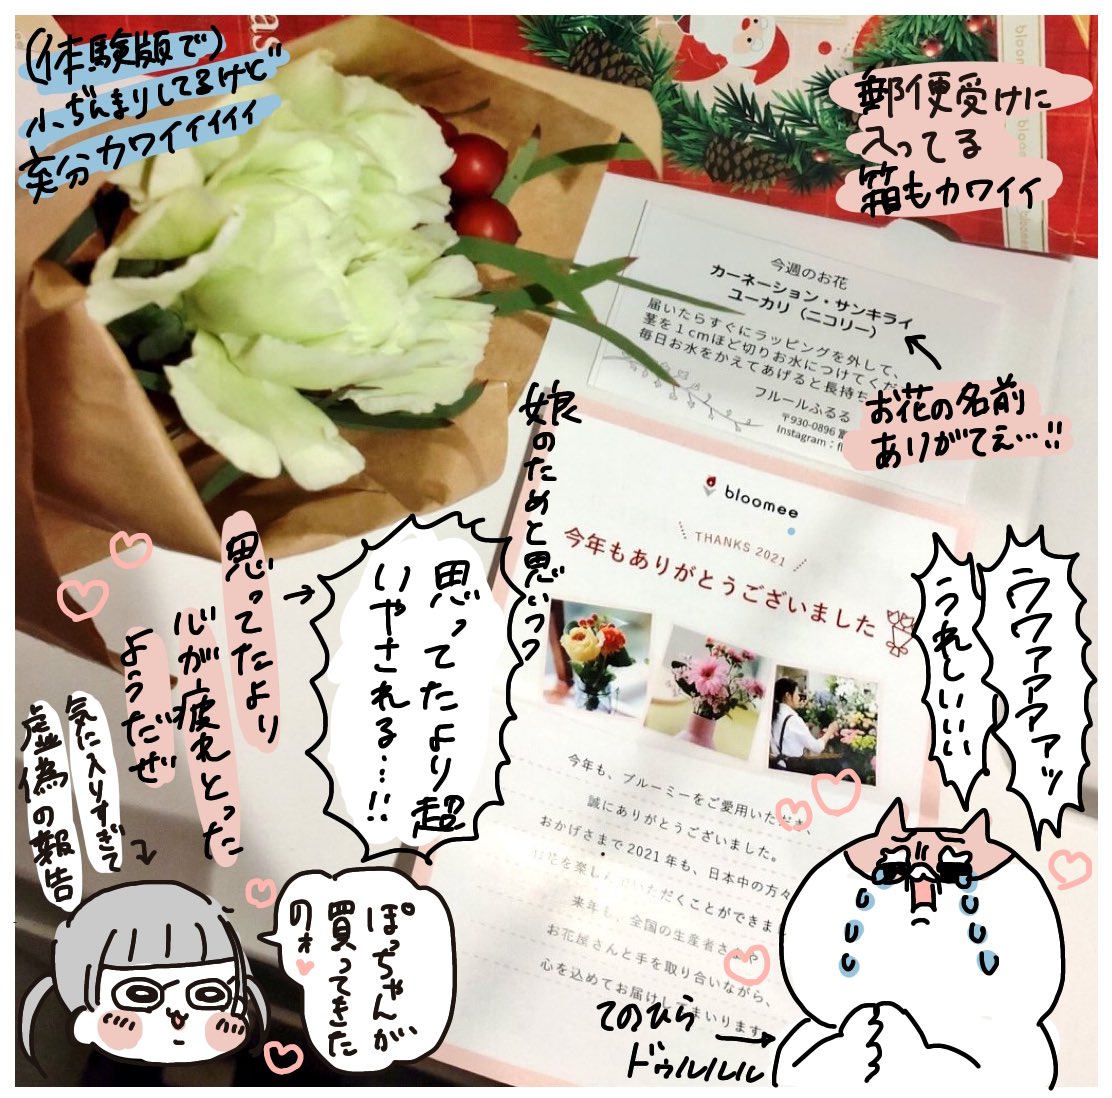 (体験版で)
小ぢんまりしてるけど
充分カワイイイイイ
郵便受けに
入ってる
箱もカワイイ
as
bloomee
今週のお花
カーネーション・サンキライ
ユーカリ（ニコリー）
届いたらすぐにラッピングを外して、
茎を１cmほど切りお水につけてくだ
毎日お水をかえてあげると長持ち
フルールふるる
〒930-0896
Instagram：
お花の名前
ありがてぇ…!!
bloomee
THANKS 2021
今年もありがとうございました
娘のためと思いつつ
ウワァァァァッ
うれしいいい
思ってたより超
いやされる…!!
思ってたより
心が疲れとった
ようだぜ
気に入りすぎて
虚偽の報告
ぽっちゃんが
買ってきた
のォ
今年も、ブルーミーをご愛用いただき、
誠にありがとうございました。
おかげさまで2021年も、日本中の方々
お花を楽しんでいただくことができま
来年も、全国の生産者さまや
お花屋さんと手を取り合いながら、
心を込めてお届けしてまいります。
てのひら
ドゥルルルル